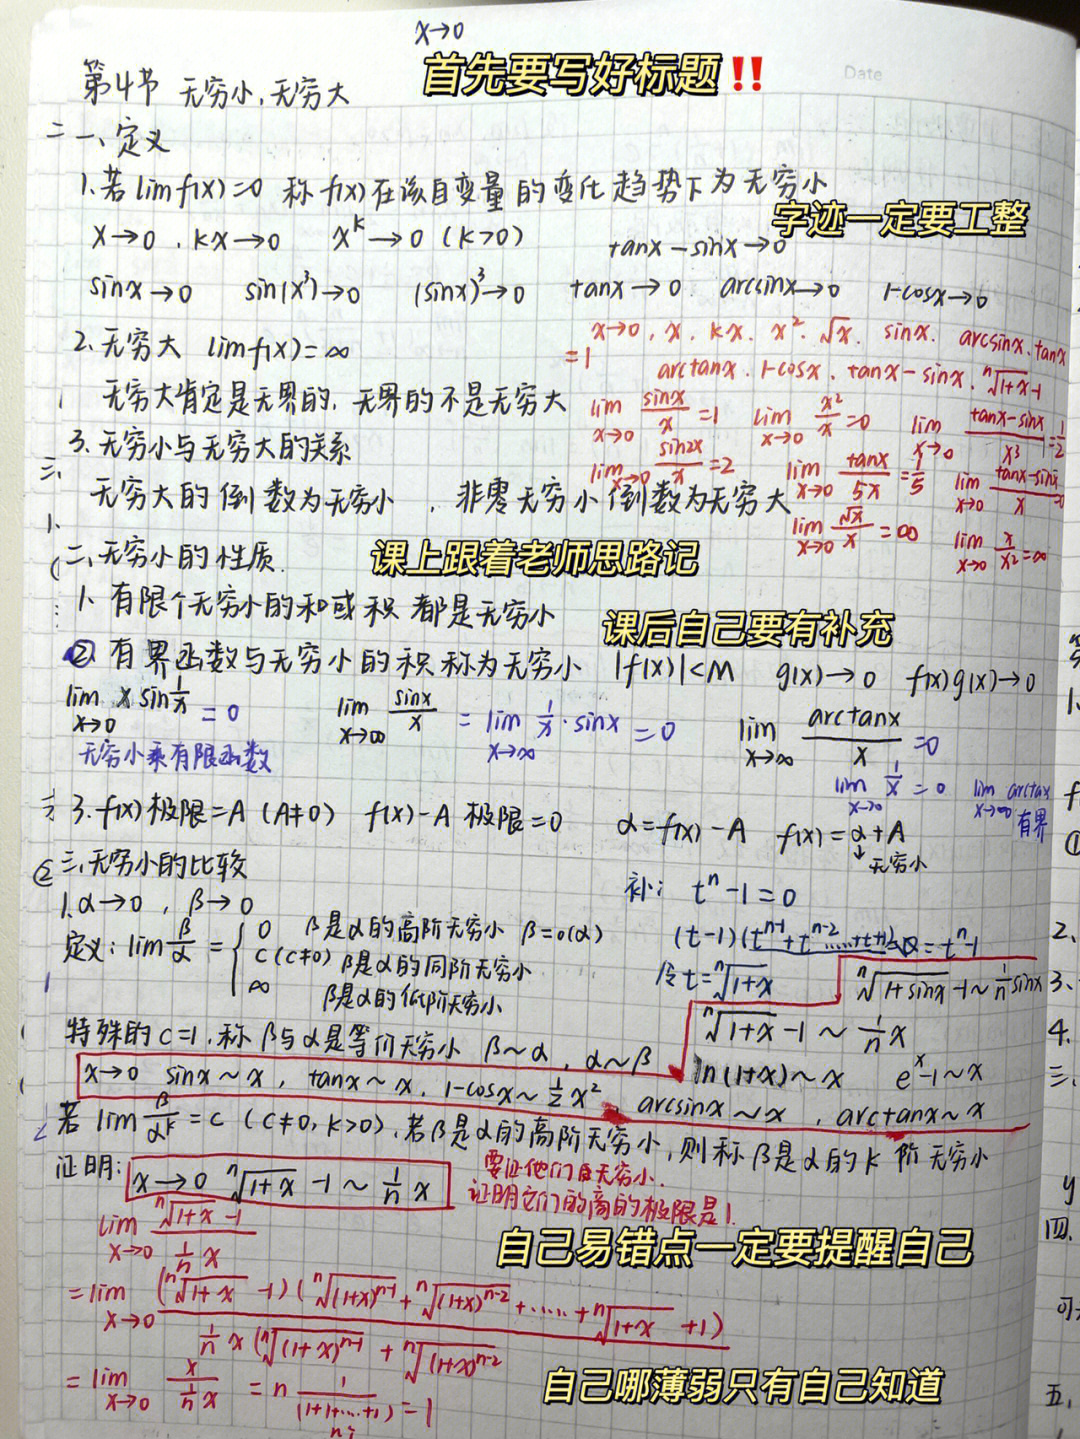 x→0
首先要写好标题!!
Date
第4节 无穷小,无穷大
一、定义
1.若lim f(x)=0 称f(x)在该自变量的变化趋势下为无穷小
字迹一定要工整
x→0 , kx→0 x^k→0 (k>0) tanx-sinx→0
sinx→0 sin(x³)→0 (sinx)³→0 tanx→0 arcsinx→0 1-cosx→0
2.无穷大 lim f(x)=∞
x→0, x. kx. x². √x. sinx. arcsinx. tanx
=1 arctanx. 1-cosx. tanx-sinx. ⁿ√1+x-1
无穷大肯定是无界的, 无界的不是无穷大
lim x→0 sinx/x=1 lim x→0 x²/x=0 lim x→0 tanx-sinx/x³=1/2
3.无穷小与无穷大的关系
lim x→0 sin2x/x=2 lim x→0 tanx/5x=1/5 lim x→0 tanx-sinx/x=0
无穷大的倒数为无穷小 , 非零无穷小倒数为无穷大
lim x→0 √x/x=∞ lim x→0 x/x²=∞
二、无穷小的性质.
课上跟着老师思路记
1、有限个无穷小的和或积 都是无穷小
课后自己要有补充
② 有界函数与无穷小的积称为无穷小 |f(x)|<M g(x)→0 f(x)g(x)→0
lim x→0 x sin1/x =0 lim x→∞ sinx/x = lim x→∞ 1/x·sinx =0 lim x→∞ arctanx/x=0
无穷小乘有限函数
lim x→∞ 1/x=0 lim x→∞ arctax 有界
3.f(x)极限=A (A≠0) f(x)-A 极限=0 α=f(x)-A f(x)=α+A
↓无穷小
三、无穷小的比较
补: tⁿ-1=0
1.α→0 , β→0
定义: lim β/α = { 0 β是α的高阶无穷小 β=o(α)
c(c≠0) β是α的同阶无穷小
∞ β是α的低阶无穷小
(t-1)(tⁿ⁻¹+tⁿ⁻²……+t+1)=0=tⁿ-1
令t=ⁿ√1+x ⁿ√1+sinx-1~1/n sinx
ⁿ√1+x-1~1/n x
特殊的c=1,称β与α是等价无穷小 β~α , α~β
ln(1+x)~x eˣ-1~x
x→0 sinx~x , tanx~x , 1-cosx~1/2x² arcsinx~x , arctanx~x
若 lim β/α^k=c (c≠0, k>0),若β是α的高阶无穷小,则称β是α的k阶无穷小
证明: x→0 ⁿ√1+x-1~1/n x
要证他们是无穷小.
证明它们的商的极限是1.
lim x→0 ⁿ√1+x-1 / 1/n x
自己易错点一定要提醒自己
=lim x→0 (ⁿ√1+x-1)(ⁿ√(1+x)ⁿ⁻¹+ⁿ√(1+x)ⁿ⁻²+……+ⁿ√1+x+1)
1/n x(ⁿ√(1+x)ⁿ⁻¹+ⁿ√(1+x)ⁿ⁻²
=lim x→0 x / 1/n x =n 1/(1+1+…+1)=1
n个
自己哪薄弱只有自己知道